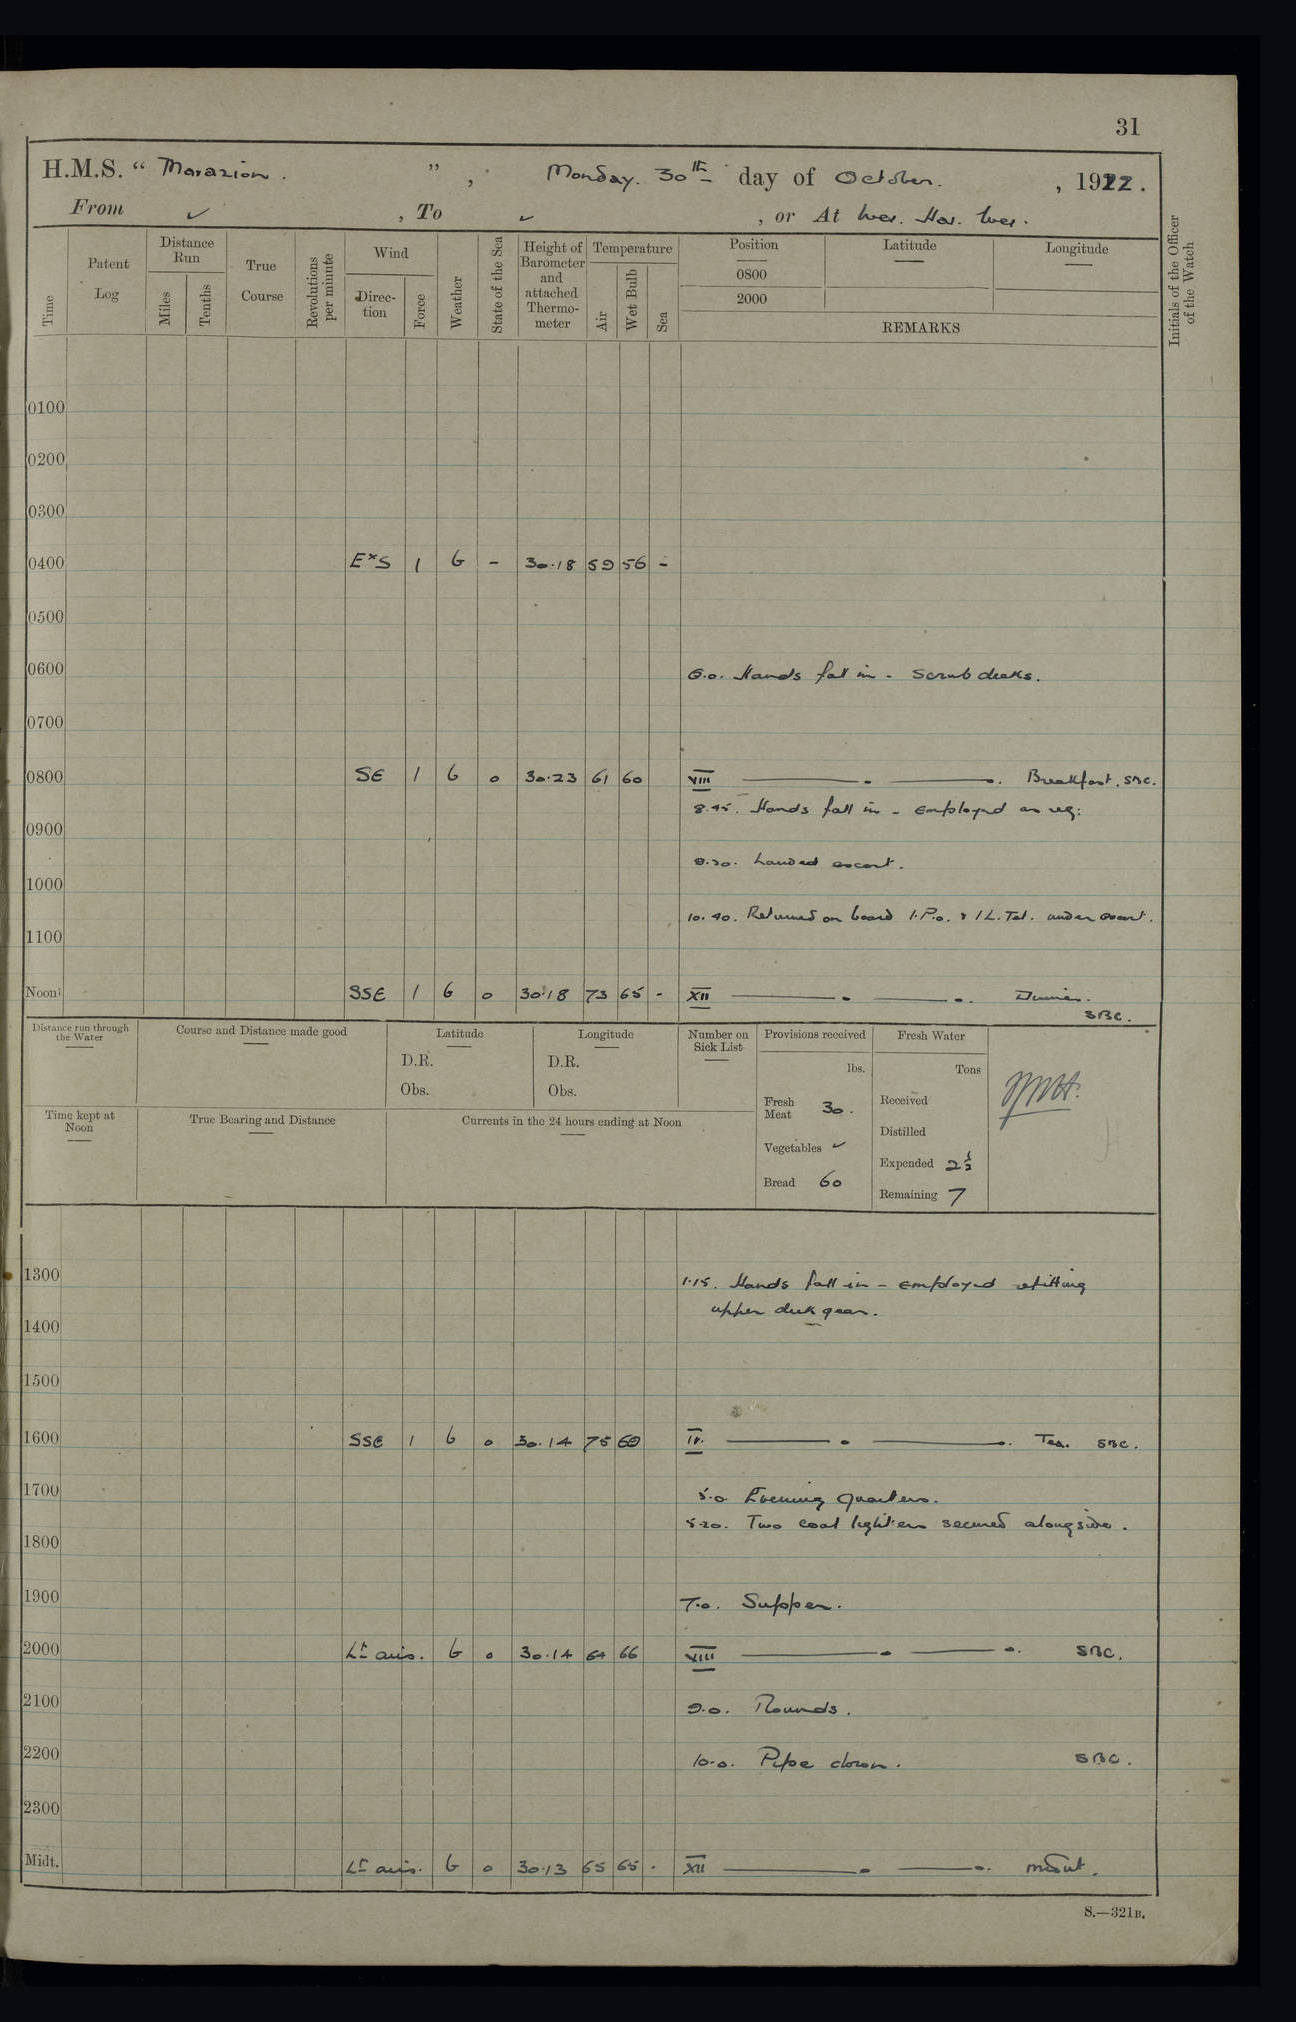 31
H.M.S. “ Marazion. ” , Monday. 30th day of October. , 1922.
From ✓ , To ✓ , or At Wei. Hai. Wei.
Time
Patent Log
Distance Run
Miles
Tenths
True Course
Revolutions per minute
Wind
Direction
Force
Weather
State of the Sea
Height of Barometer and attached Thermometer
Temperature
Air
Wet Bulb
Sea
Position
0800
2000
Latitude
Longitude
REMARKS
Initials of the Officer of the Watch
0100
0200
0300
0400 ExS 1 b - 30.18 59 56 -
0500
0600 6.0. Hands fall in - Scrub decks.
0700
0800 SE 1 b 0 30.23 61 60 VIII Breakfast. SBC.
8.45. Hands fall in - employed as req:
0900
9.30. Landed escort.
1000
10.40. Returned on board 1.P.O. & 1 L. Tel. under escort.
1100
Noon SSE 1 b 0 30.18 73 65 - XII Dinner.
SBC.
Distance run through the Water
Course and Distance made good
Latitude
D.R.
Obs.
Longitude
D.R.
Obs.
Number on Sick List
Provisions received
lbs.
Fresh Meat 30.
Vegetables ✓
Bread 60
Fresh Water
Tons
Received
Distilled
Expended 2½
Remaining 7
Time kept at Noon
True Bearing and Distance
Currents in the 24 hours ending at Noon
1300 1.15. Hands fall in - employed refitting
upper deck gear.
1400
1500
1600 SSE 1 b 0 30.14 75 69 IV. Tea. SBC.
1700 5.0. Evening Quarters.
5.20. Two coal lighters secured alongside.
1800
1900 7.0. Supper.
2000 Lt airs. b 0 30.14 64 66 VIII SBC.
2100 9.0. Rounds.
2200 10.0. Pipe down. SBC.
2300
Midt. Lt airs. b 0 30.13 65 65 - XII
S.—321B.